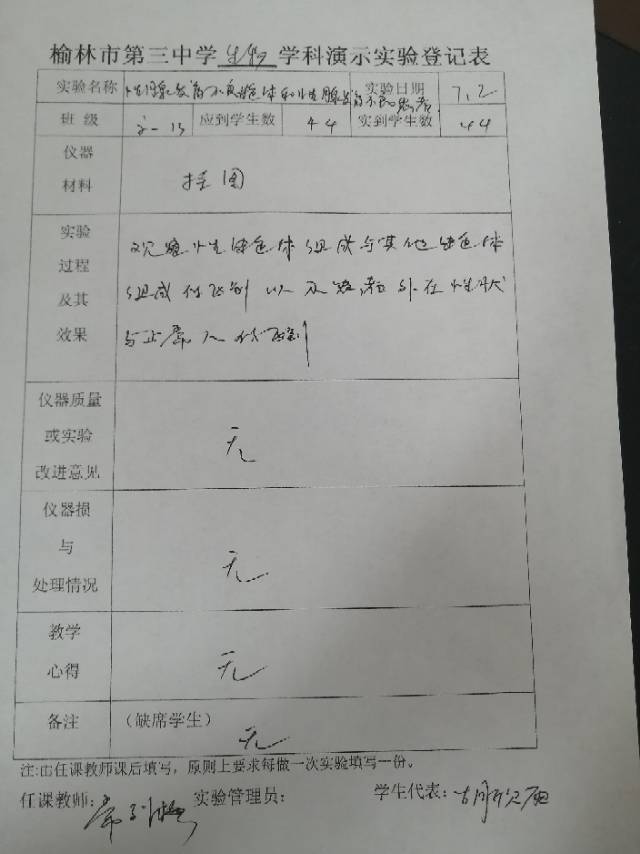 榆林市第三中学生物学科演示实验登记表
实验名称 性腺发育不良染色体和性腺发育不良患者 实验日期 7.2
班 级 应到学生数 44 实到学生数 44
仪器
材料 挂图
实验
过程
及其
效果
观察性染色体组成与其他染色体
组成 区别 以及患者外在性状
与正常人 区别
仪器质量
或实验
改进意见
无
仪器损
与
处理情况
无
教学
心得
无
备注 (缺席学生)
无
注:由任课教师课后填写,原则上要求每做一次实验填写一份。
任课教师: 实验管理员: 学生代表: